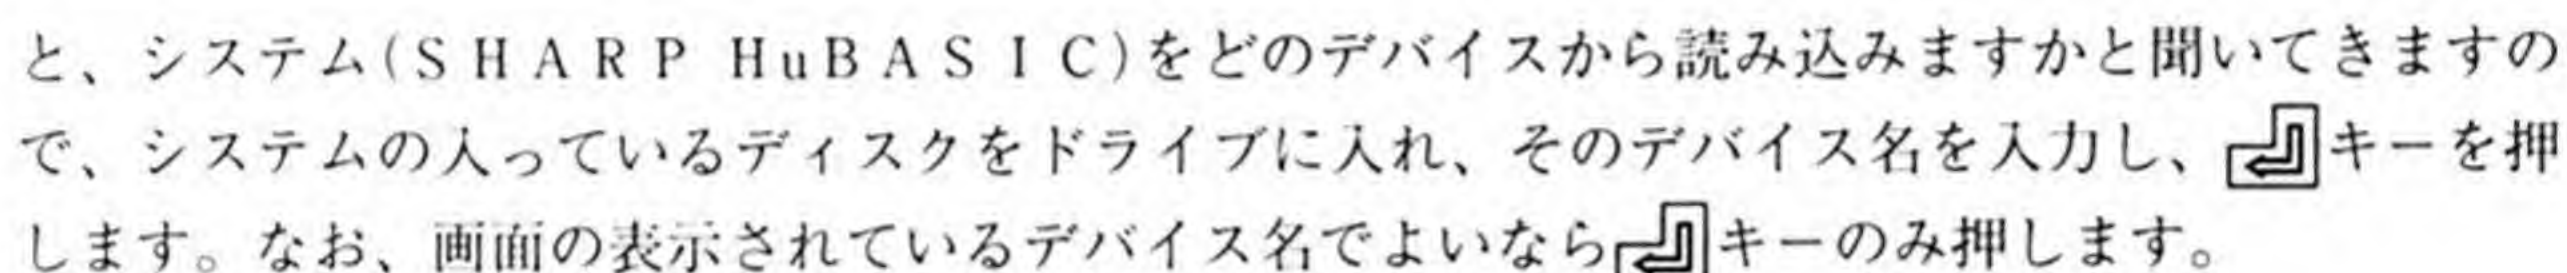 と、システム(SHARP HuBASIC)をどのデバイスから読み込みますかと聞いてきますの
で、システムの入っているディスクをドライブに入れ、そのデバイス名を入力し、キーを押
します。なお、画面の表示されているデバイス名でよいならキーのみ押します。